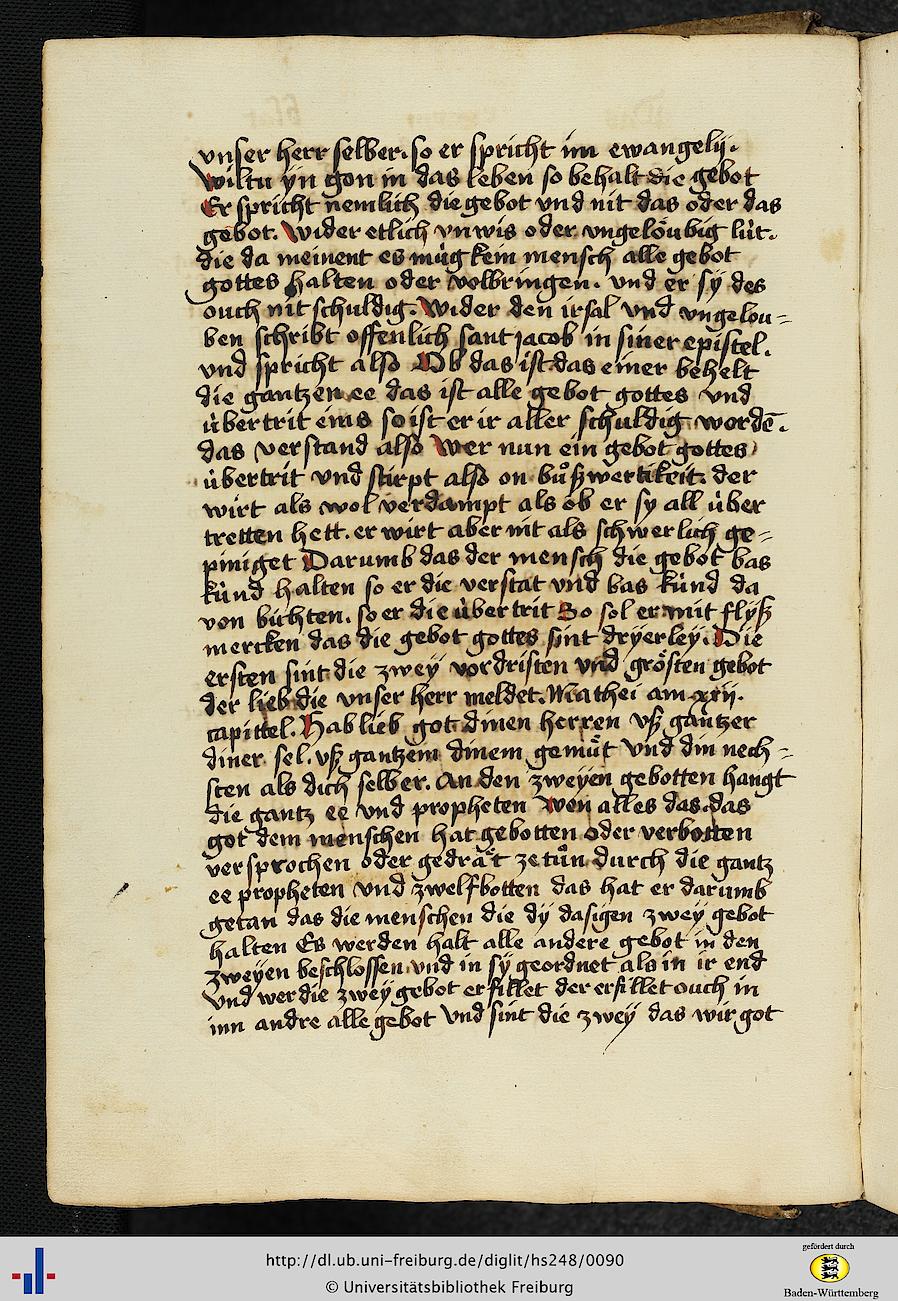 vnser herr selber. so er spricht im ewangelij.
Wiltu yn gon in das leben so behalt die gebot
Er spricht nemlich die gebot vnd nit das oder das
gebot. Wider etlich vnwis oder vngelöubig lüt.
die da meinent es müg kein mensch alle gebot
gottes halten oder volbringen. vnd er sÿ des
ouch nit schuldig. Wider den irsal vnd vngelou-
ben schribt offenlich sant jacob in siner epistel.
vnd spricht also Ob das ist das einer behelt
die gantzen ee das ist alle gebot gottes vnd
übertrit eins so ist er ir aller schuldig wordē.
das verstand also Wer nun ein gebot gottes
übertrit vnd stirpt also on bůßwertikeit. der
wirt als wol verdampt als ob er sy all über
tretten hett. er wirt aber nit als schwerlich ge-
piniget Darumb das der mensch die gebot bas
künd halten so er die verstat vnd bas künd da
von bichten. so er die übertrit So sol er mit flyß
mercken das die gebot gottes sint drÿerleÿ. Die
ersten sint die zweÿ vordristen vnd grösten gebot
der lieb die vnser herr meldet. Mathei am xxij.
capittel. Hab lieb got dinen herren vß gantzer
diner sel. vß gantzem dinem gemüt vnd din nech-
sten als dich selber. An den zweÿen gebotten hangt
die gantz ee vnd propheten Won alles das das
got dem menschen hat gebotten oder verbotten
versprochen oder gedrät ze tůn durch die gantz
ee propheten vnd zwelfbotten das hat er darumb
getan das die menschen die dÿ dasigen zweÿ gebot
halten Es werden halt alle andere gebot in den
zweÿen beschlossen vnd in sÿ geordnet als in ir end
Vnd wer die zweÿ gebot erfillet der erfillet ouch in
inn andre alle gebot Vnd sint die zweÿ das wir got
http://dl.ub.uni-freiburg.de/diglit/hs248/0090
© Universitätsbibliothek Freiburg
gefördert durch
Baden-Württemberg